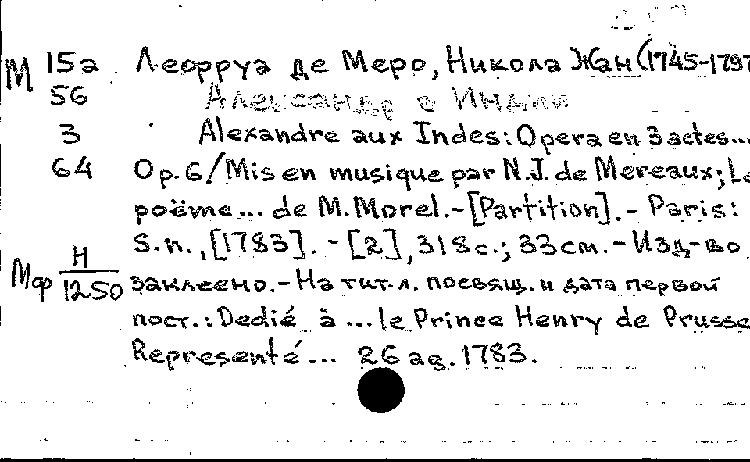 М 15а Леорруа де Меро, Никола Жан (1745-1797
56 Александр в Индии
3 Alexandre aux Indes: Opera en 3 actes...
64 Op. 6/Mis en musique par N.J. de Mereaux; Le
poëme... de M. Morel.-[Partition].- Paris:
S.n., [1783]. - [2], 318 с.; 33 см. - Изд-во
Мф Н/1250 заклеено.- На тит. л. посвящ. и дата первой
пост.: Dedié à ... le Prince Henry de Prusse
Representé... 26 ag. 1783.